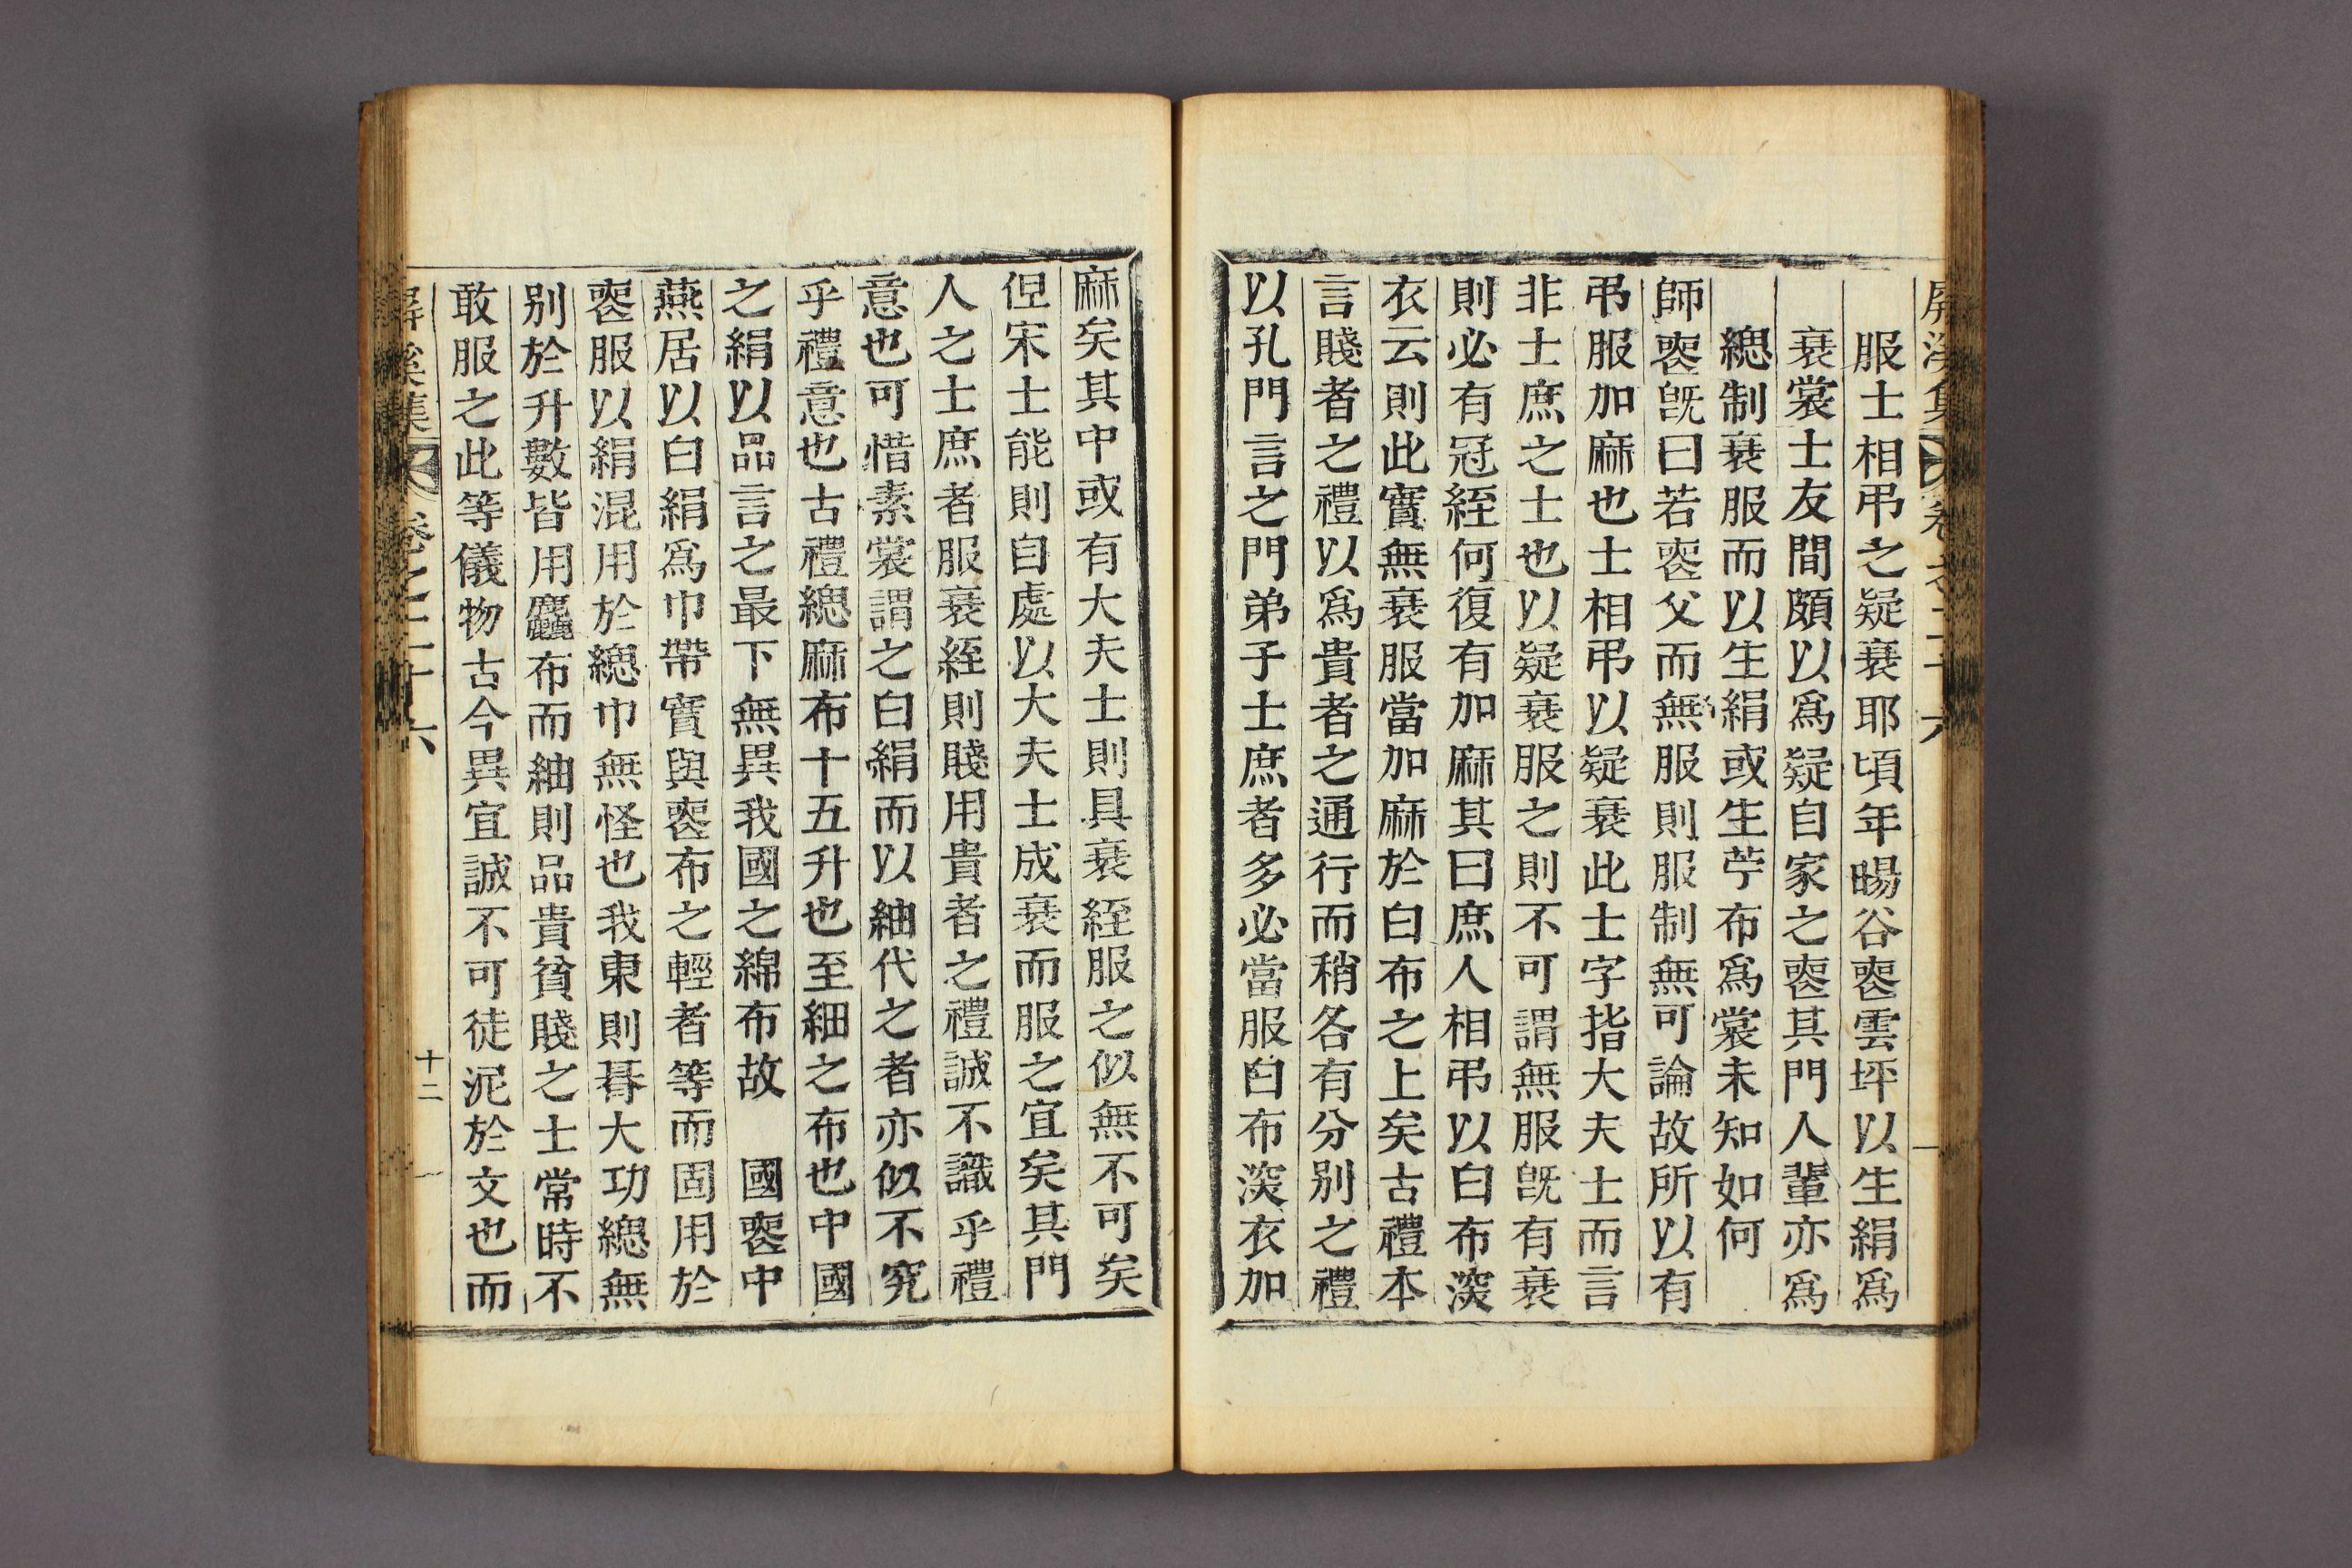 屛溪集 卷之二十六
服士相弔之疑衰耶頃年暘谷喪雲坪以生絹爲
衰裳士友間頗以爲疑自家之喪其門人輩亦爲
緦制衰服而以生絹或生苧布爲裳未知如何
師喪旣曰若喪父而無服則服制無可論故所以有
弔服加麻也士相弔以疑衰此士字指大夫士而言
非士庶之士也以疑衰服之則不可謂無服旣有衰
則必有冠絰何復有加麻其曰庶人相弔以白布深
衣云則此實無衰服當加麻於白布之上矣古禮本
言賤者之禮以爲貴者之通行而稍各有分別之禮
以孔門言之門弟子士庶者多必當服白布深衣加
麻矣其中或有大夫士則具衰絰服之似無不可矣
但宋士能則自處以大夫士成衰而服之宜矣其門
人之士庶者服衰絰則賤用貴者之禮誠不識乎禮
意也可惜素裳謂之白絹而以紬代之者亦似不究
乎禮意也古禮緦麻布十五升也至細之布也中國
之絹以品言之最下無異我國之綿布故 國喪中
燕居以白絹爲巾帶實與喪布之輕者等而固用於
喪服以絹混用於緦巾無怪也我東則朞大功緦無
別於升數皆用麤布而紬則品貴貧賤之士常時不
敢服之此等儀物古今異宜誠不可徒泥於文也而
屛溪集 卷之二十六 十二